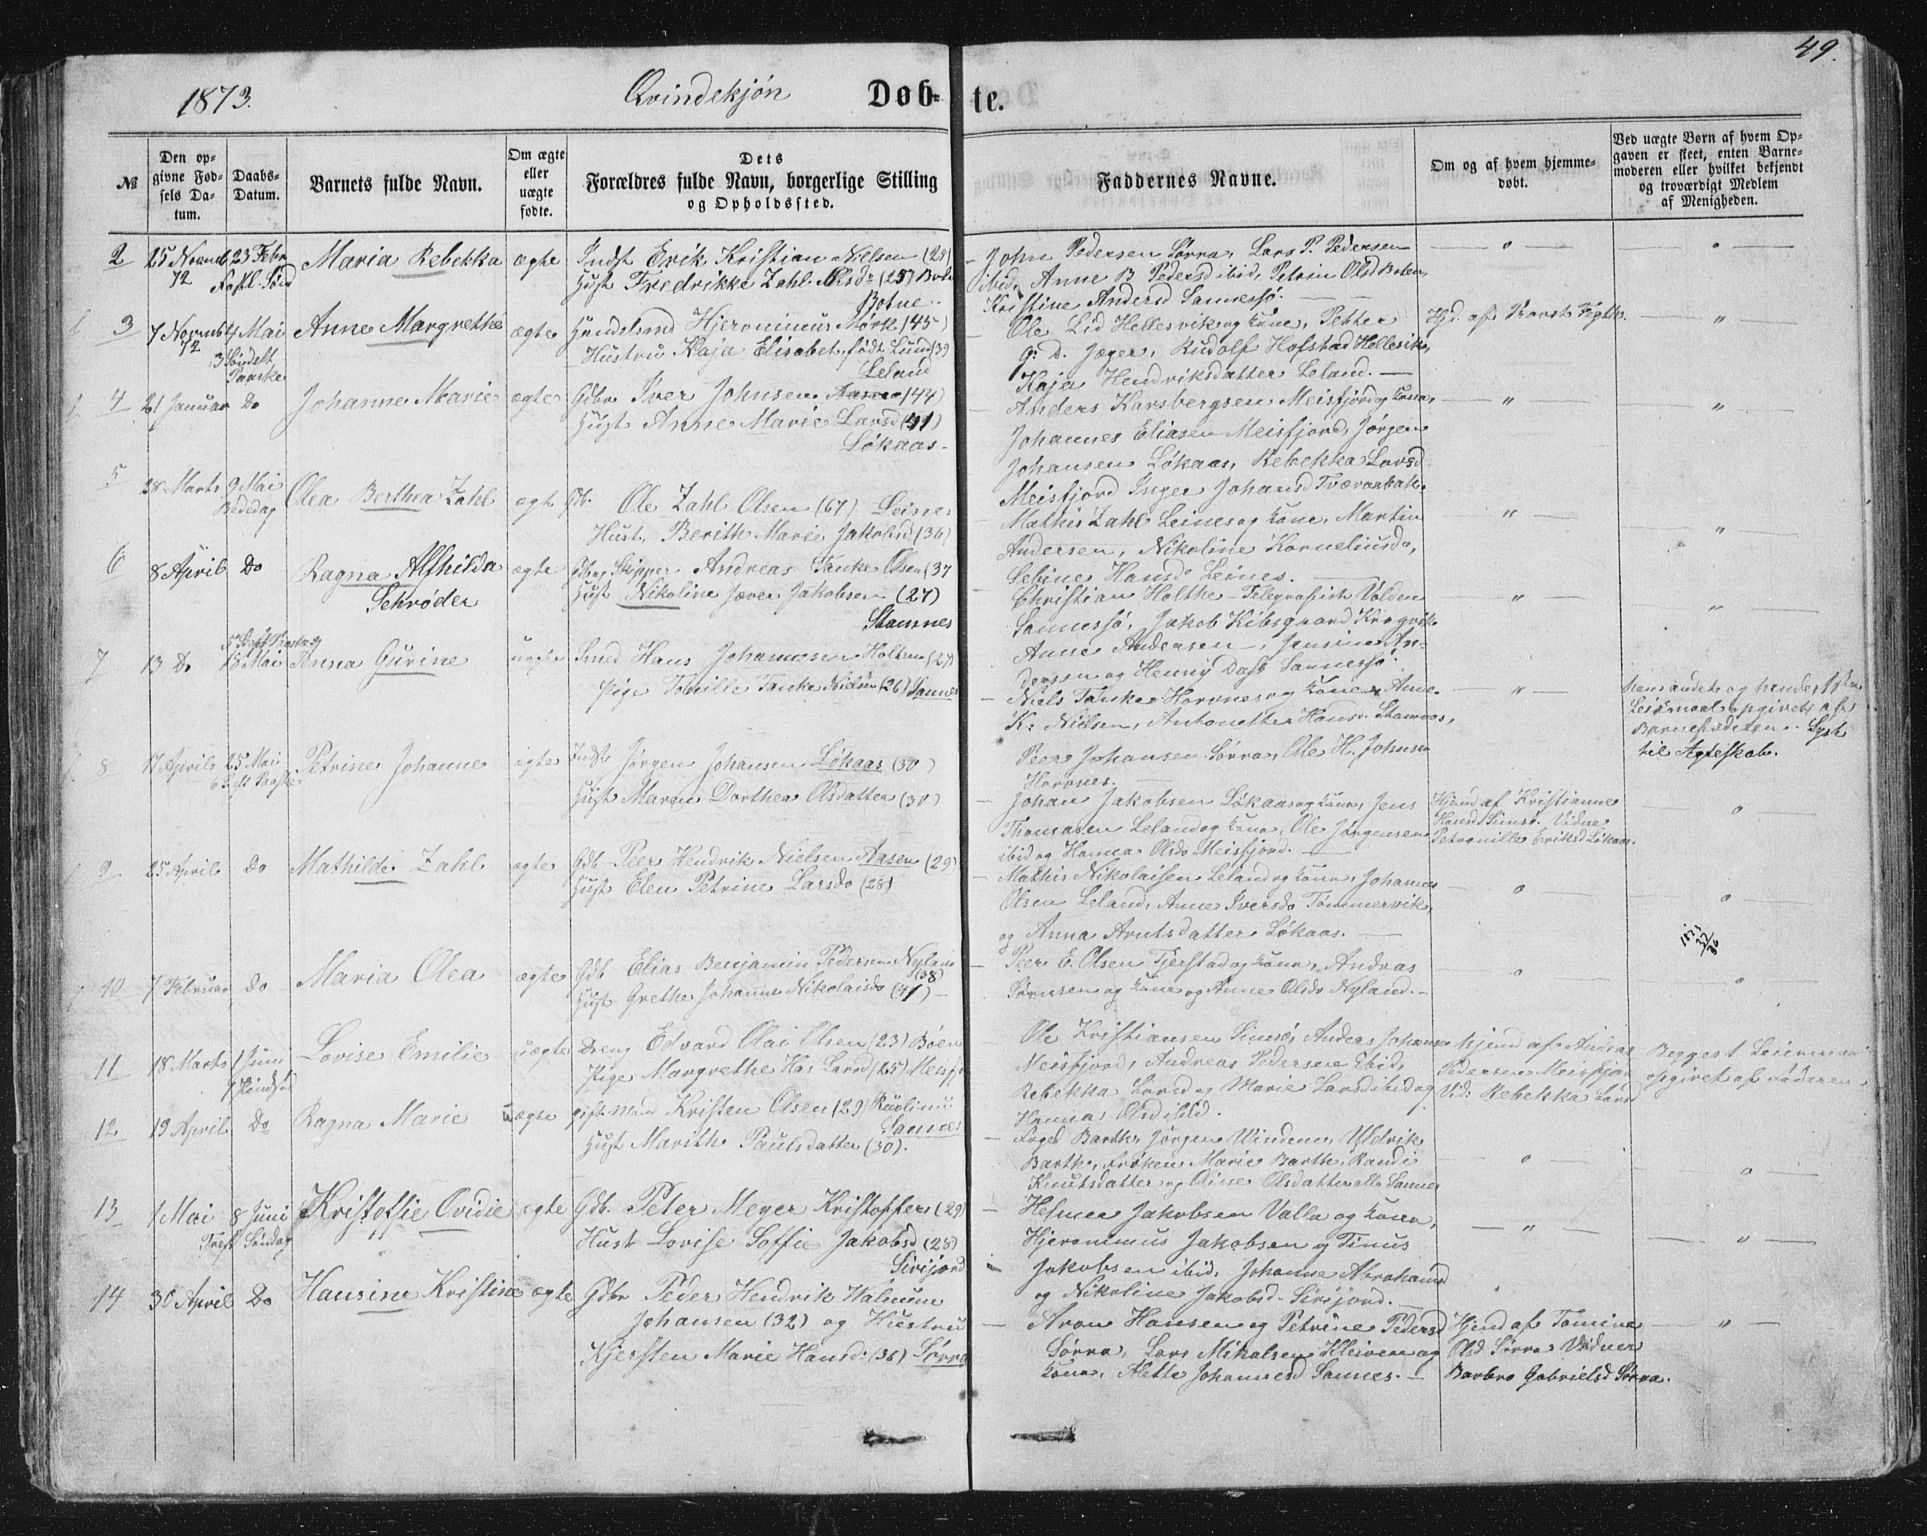 49.
1873.
Qvindekjøn
Døb-
te.
№
Den op-
givne Fød-
sels Da-
tum.
Daabs-
Datum.
Barnets fulde Navn.
Om ægte
eller
uægte
fødte.
Dets
Forældres fulde Navn, borgerlige Stilling
og Opholdssted.
Faddernes Navne.
Om og af hvem hjemme-
døbt.
Ved uægte Børn af hvem Op-
gaven er skeet, enten Barne-
moderen eller hvilket bekjendt
og troværdigt Medlem
af Menigheden.
2 25 Novmb 23 Febr Maria Rebekka ægte Indst Erik Kristian Nielsen
72 Fastl. Sønd Hust Fredrikke Zahl (25)
Botne.
John Pedersen Sørra, Lars P. Pedersen
ibid, Anne B Pedersd ibid, Petrin Olsd Boten,
Kristine Andersd Sannessø.
3 7 Novmb 4 Mai Anne Margrethe ægte Handelsmd Hjeronimus Mørk (45)
72 3 Søndeft Hustru Kaja Elisabet, født Lund (39
Paaske Leland
Ole Lid Hellesvik og Kone, Petter
G. D. Jæger, Rudolf Hofstad Hellesvik,
Kaja Hendriksdatter Leland.
Hjd. af
4 21 Januar Do Johanne Marie ægte Gdbr Iver Johnsen Aasen (44)
Hust Anne Marie Larsd (41)
Løkaas
Anders Karsbergsen Meisfjord og Kone,
Johannes Eliasen Meisfjord, Jørgen
Johansen Løkaas, Rebekka Larsd
Meisfjord Inger Johansd
5 28 Marts 9 Mai Olea Berthea Zahl ægte Gb. Ole Zahl Olsen (67) Leines
Bededag Hust. Berith Marie Jakobsd (36)
Mathis Zahl Leines og Kone, Martin
Andersen, Nikoline Korneliusd,
Sebine Hansd Leines.
6 8 April Do Ragna Alfhilda ægte Skipper Andreas Tanke Olsen (37
Schrøder Hust Nikoline Jæver Jakobsen (27)
Stamnes
Christian Holthe Telegrafist Volden
Sannessø, Jakob Kibsgaard
Anne Andersen, Jensine An-
dersen og Henny Dass Sannessø
7 13 Do 18 Mai Anna Gurine uægte Smed Hans Johansen Holten (27)
Pige Tomille Tanke Nielsen (26) Sannes
Niels Tanke Horvnes og Kone, Anne
K. Nielsen, Antonette Hansd Stamnes,
Peer Johansen Sørra, Ole H. Johnsen
Horvnes.
hans andet og hendes
Leiermaal opgivet af
Barnefaderen. Lyst
til Ægteskab.
8 17 April 25 Mai Petrine Johanne ægte Indst Jørgen Johansen Løkaas (30)
Hust Maren Dorthea Olsdatter (30)
Johan Jakobsen Løkaas og Kone, Jens
Thomasen Leland og Kone, Ole Jørgensen
ibid og Hanna Olsd Meisfjord.
Hjemd af Kristianne
Vidne
Petronille Eriksd Løkaas.
9 25 April Do Mathilde Zahl ægte Gdb. Peer Hendrik Nielsen Aasen (29)
Hust Elen Petrine Larsd (28)
Mathis Nikolaisen Leland og Kone, Johannes
Olsen Leland, Anne Iversd Tømmervik,
og Anna Arntsdatter Løkaas.
10 7 Februar Do Maria Olea ægte Gdb Elias Benjamin Pedersen Nyland
(38)
Hust Grethe Johanne Nikolaisd (41)
Peer E. Olsen Tjerstad og Kone, Andras
Sørnsen og Kone og Anne Olsd Nyland.
11 18 Marts 1 Juni Lovise Emilie uægte Dreng Edvard Olai Olsen (23) Bøen
1 Pindsd Pige Margrethe Larsd (25) Meisfj
Ole Kristiansen Anders Johans
Meisfjord, Andreas Pedersen ibid,
Rebekka Larsd og Marie Larsd ibid og
Hanna Olsd ibid.
Hjemd af Andreas
Pedersen Meisfjor
Vid. Rebekka Larsd
Begges 1 Leiermaal
opgivet af Faderen.
12 19 April Do Ragna Marie uægte gift Mand Kristen Olsen (29)
Sannes
Hust Marith Paulsdatter (30).
Foged Barth, Jørgen Winden, Uldrik
Barth, Frøken Marie Barth, Randi
Knutsdatter og Oline Olsdatter alle Sannes
13 1 Mai 8 Juni Kristoffie Ovidie ægte Gdb. Peter Meyer Kristoffers (29)
Tref Søndag Hust Lovise Soffie Jakobsd (28)
Sirijord
Helmer Jakobsen Valla og Kone,
Hjeronimus Jakobsen og Tinus
Jakobsen ibid, Johanne Abrahamsd
og Nikoline Jakobsd Sirijord.
14 30 April Do Hansine Kristine ægte Gdbr Peder Hendrik
Johansen (32) og Hustru
Kjersten Marie Hansd (36) Sørra
Aron Hansen og Petrine Pedersd
Sørra, Lars Mikalsen Kleiven og
Kone, Alette Johannesd Sannes.
Hjemd af Tomine
Olsd Sørra Vidner
Barbro Gabrielsd Sørra.